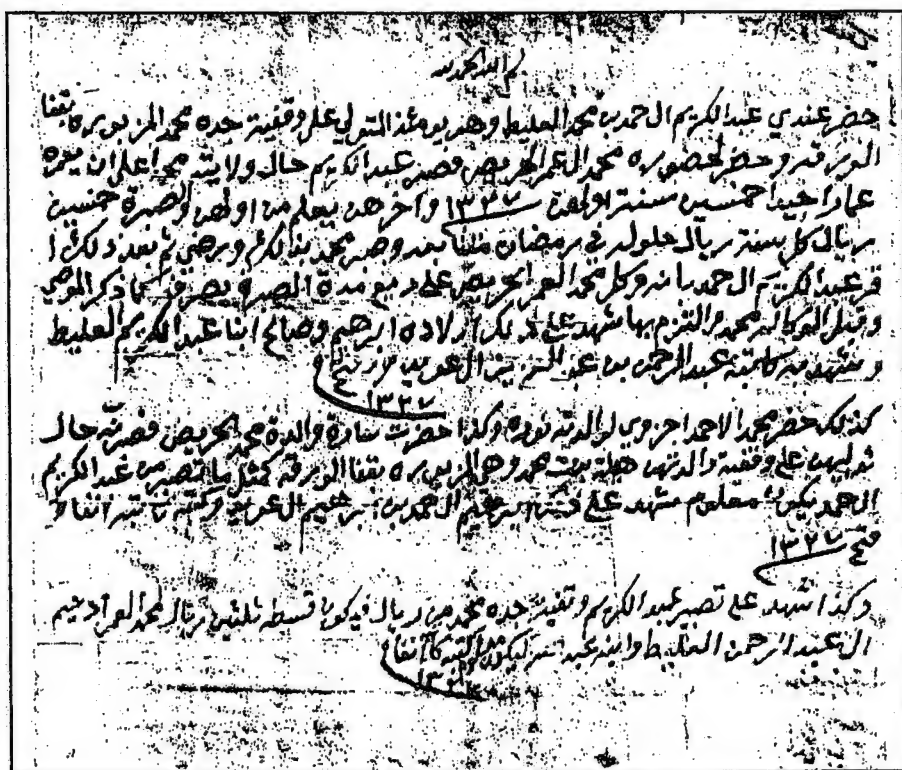 الحمد لله
حضر عندي عبدالكريم الحمد بن محمد العليط وهو يومئذ المتولي على وقفية جده محمد المزبوره بقفا
الورقه وحضر لحضوره محمد العمر الحريص فصبر عبدالكريم حال ولايته محمد على ان يعمره
عمار جيد خمسين سنة اولهن ١٣٢٧ وآخرهن يعلم من اولهن والصبرة خمسين
ريال كل سنة ريال حلوله في رمضان وصبر محمد بذالك ورضي ثم بعد ذلك
قر عبدالكريم الحمد بانه وكل محمد العمر الحريص على ربع مدة الصبره يصرف ذكر الموصي
وقبل الوكاله محمد والتزم بها شهد على ذلك اولاده ابرهيم وصالح ابنا عبدالكريم العليط
وشهد به كاتبه عبدالرحمن بن عبدالعزيز العويد
١٣٢٧
كذلك حضر محمد الاحمد لوالدته نوره وكذا حضرت ساره والدة محمد الحريص حال
على وقفية والدتهن هيلة بنت حمد وهي المزبوره بقفا الورقه كمثل ما تصبر من عبدالكريم
الحمد يكون معلوم شهد على ابرهيم الحمد بن ابرهيم العويد وكتبه كاتبه انفا
١٣٢٧
وكذا شهد على تصبير عبدالكريم وقفية جده محمد من ريال فيكون قسطه ثلثين ريال محمد العمر
العبدالرحمن العليط وابنه عبدالله ليكون كاتبه انفا